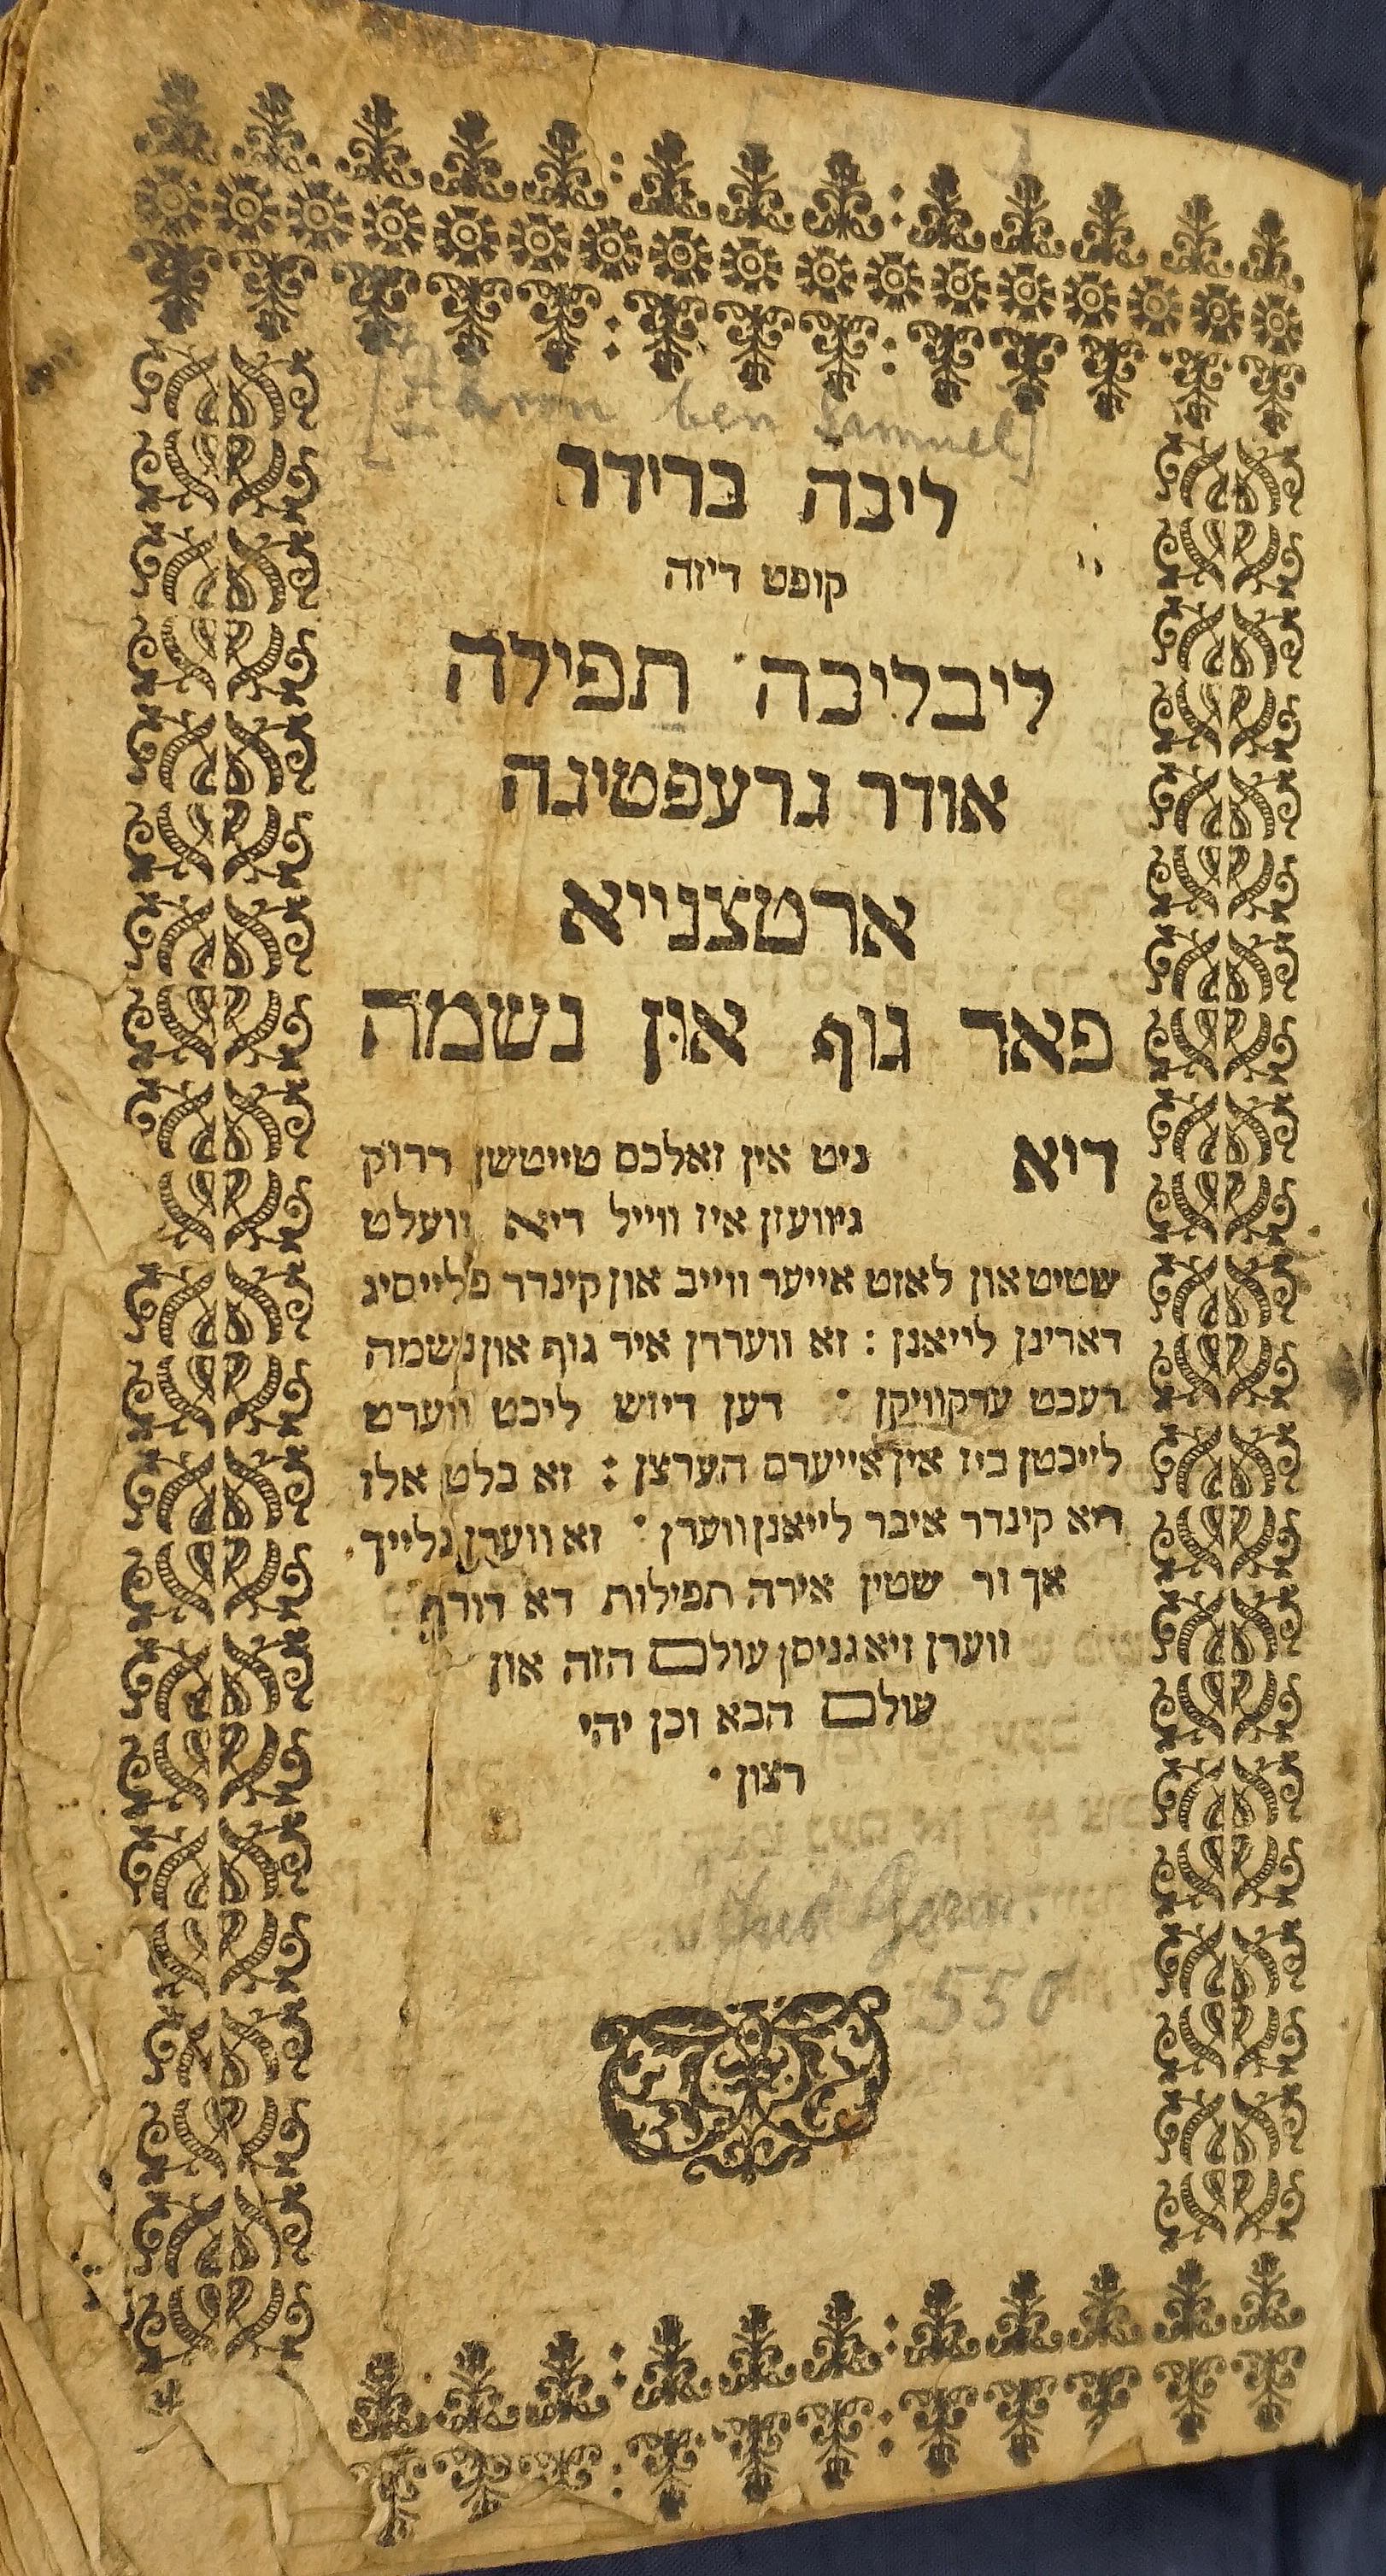 [Aharon ben Samuel]
ליבה ברידר
קופט דיזה
ליבליכה תפילה
אודר גרעפטיגה
ארטצנייא
פאר גוף און נשמה
דוא ניט אין זאלכם טייטשן דרוק
גיוועזן איז ווייל דיא וועלט
שטיט און לאזט אייער ווייב און קינדר פלייסיג
דארינן לייאנן : זא ווערדן איר גוף און נשמה
רעכט ערקוויקן · דען דיזש ליכט ווערט
לייכטן ביז אין אייערם הערצן : זא בלט אלז
דיא קינדר איבר לייאנן ווערן · זא ווערן גלייך
אך ור שטין אירה תפילות דא דורף
ווערן זיא גניסן עולם הזה און
עולם הבא וכן יהי
רצון ·
Jud Germ.
550